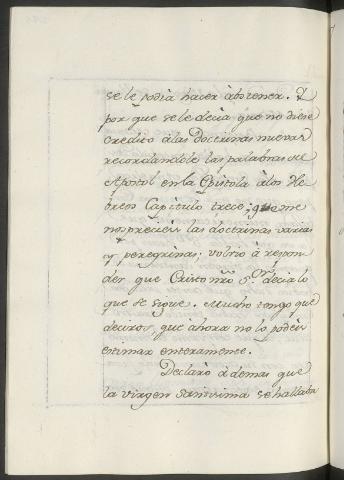 se le podia hacer à bstener. Y
por que se le decia que no diese
credito à las doctrinas nuevas
recordandole las palabras del
Apostol en la Epistola à los He
breos Capitulo trece; que me
nos precien las doctrinas varias
y peregrinas; volvio à respon
der que Cristo nrõ S.or decia lo
que se sigue. Mucho tengo que
deciros, que ahora no lo podeis
estimar enteramente.
Declarò àdemas que
la virgen Santisima se hallaba